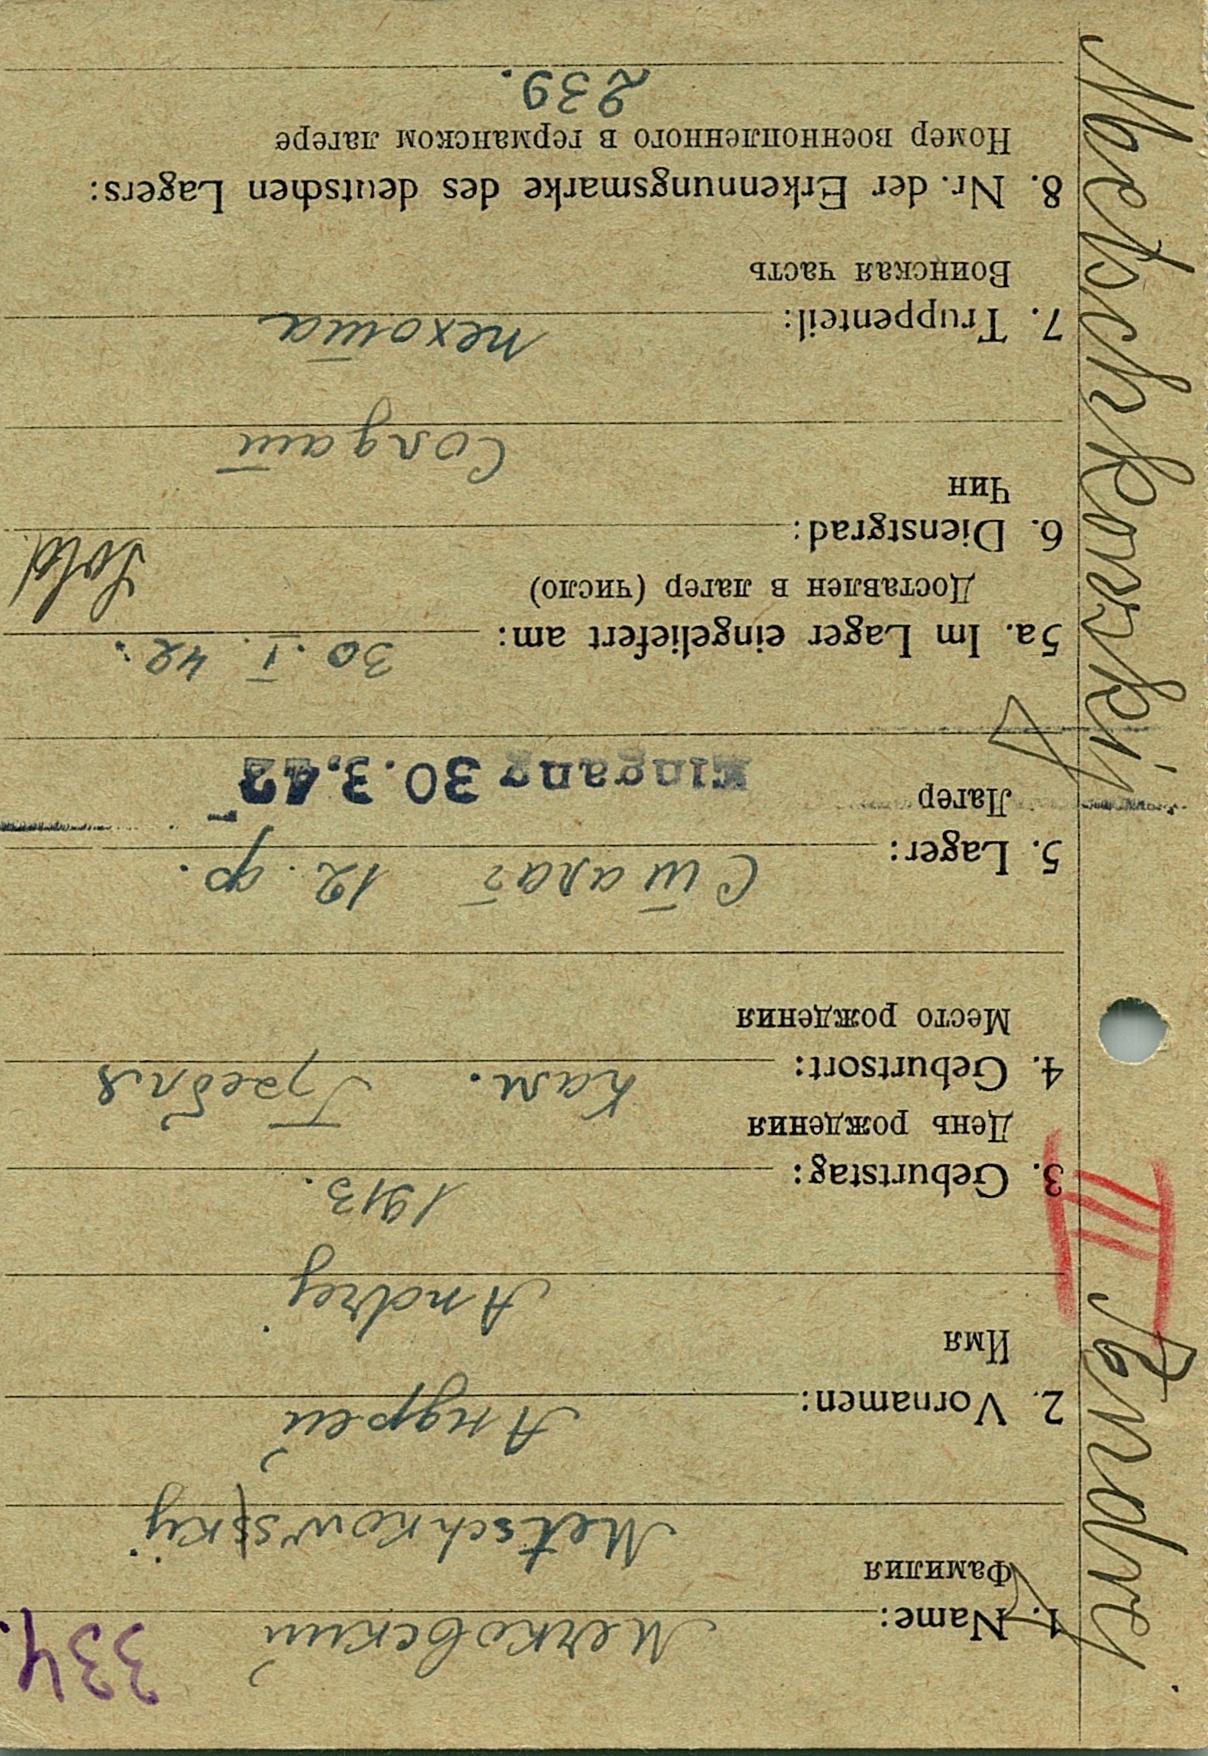 334.
1. Name: Мечковский
Фамилия
Metschkowskij
2. Vornamen: Андрей
Имя
Andrej
3. Geburtstag: 1913.
День рождения
4. Geburtsort: Кам. Гребля
Место рождения
5. Lager: Сталаг 12. ф.
Лагер
Eingang 30.3.42
5a. Im Lager eingeliefert am: 30. I. 42.
Доставлен в лагер (число)
Sold.
6. Dienstgrad:
Чин
Солдат
7. Truppenteil: пехота
Воинская часть
8. Nr. der Erkennungsmarke des deutschen Lagers:
Номер военнопленного в германском лагере
239.
Metschkowskij
III Andrej